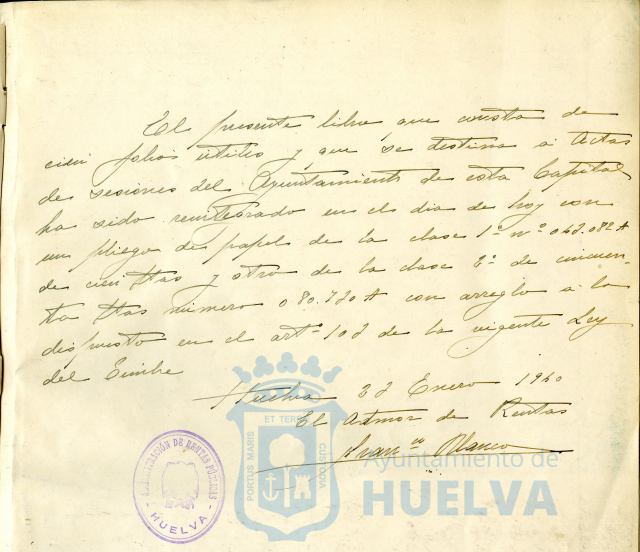 El presente libro que consta de
cien folios útiles y que se destina a Actas
de sesiones del Ayuntamiento de esta Capital
ha sido reintegrado en el dia de hoy con
un pliego de papel de la clase 1ª nº 043.082 A
de cien ptas y otro de la clase 2ª de cincuen-
ta ptas número 080.720 A con arreglo a lo
dispuesto en el artº 102 de la vigente Ley
del Timbre
Huelva 22 Enero 1940
El Admor de Rentas
Franco Blanco
ADMINISTRACIÓN DE RENTAS PÚBLICAS
HUELVA
PORTUS MARIS ET TERRE CUSTODIA
Ayuntamiento de
HUELVA